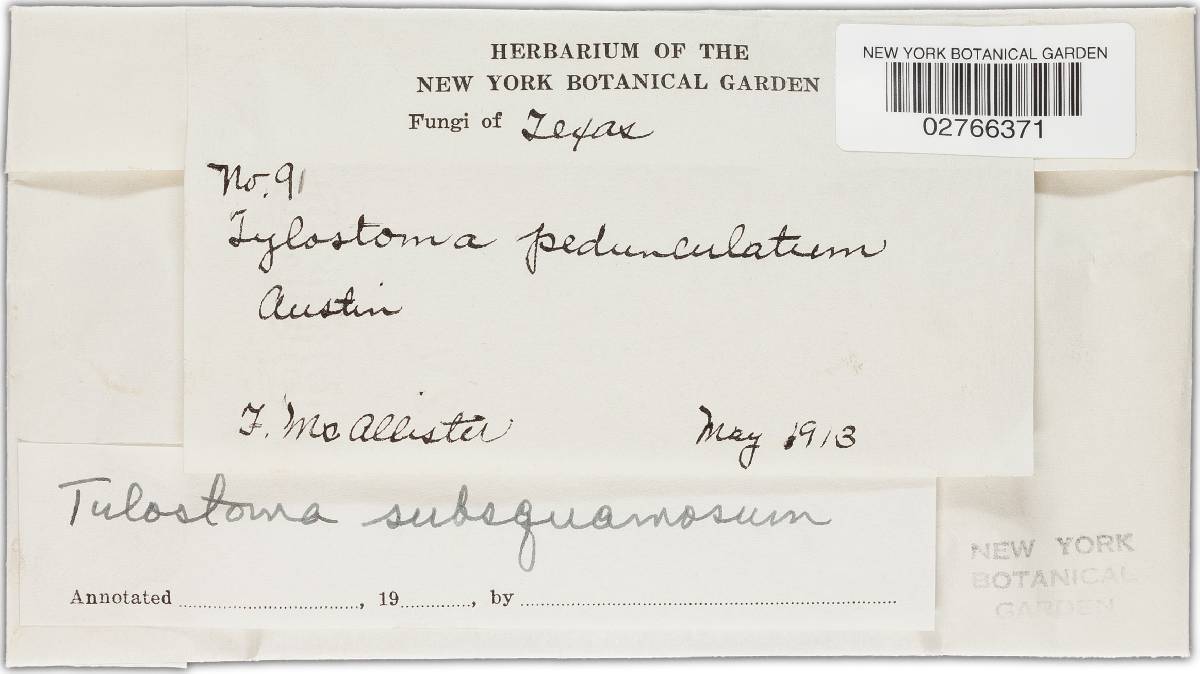 HERBARIUM OF THE
NEW YORK BOTANICAL GARDEN
Fungi of Texas
NEW YORK BOTANICAL GARDEN
02766371
No. 91
Tylostoma pedunculatum
Austin
F. McAllister May 1913
Tulostoma subsquamosum
Annotated ........................, 19............, by ........................
NEW YORK
BOTANICAL
GARDEN